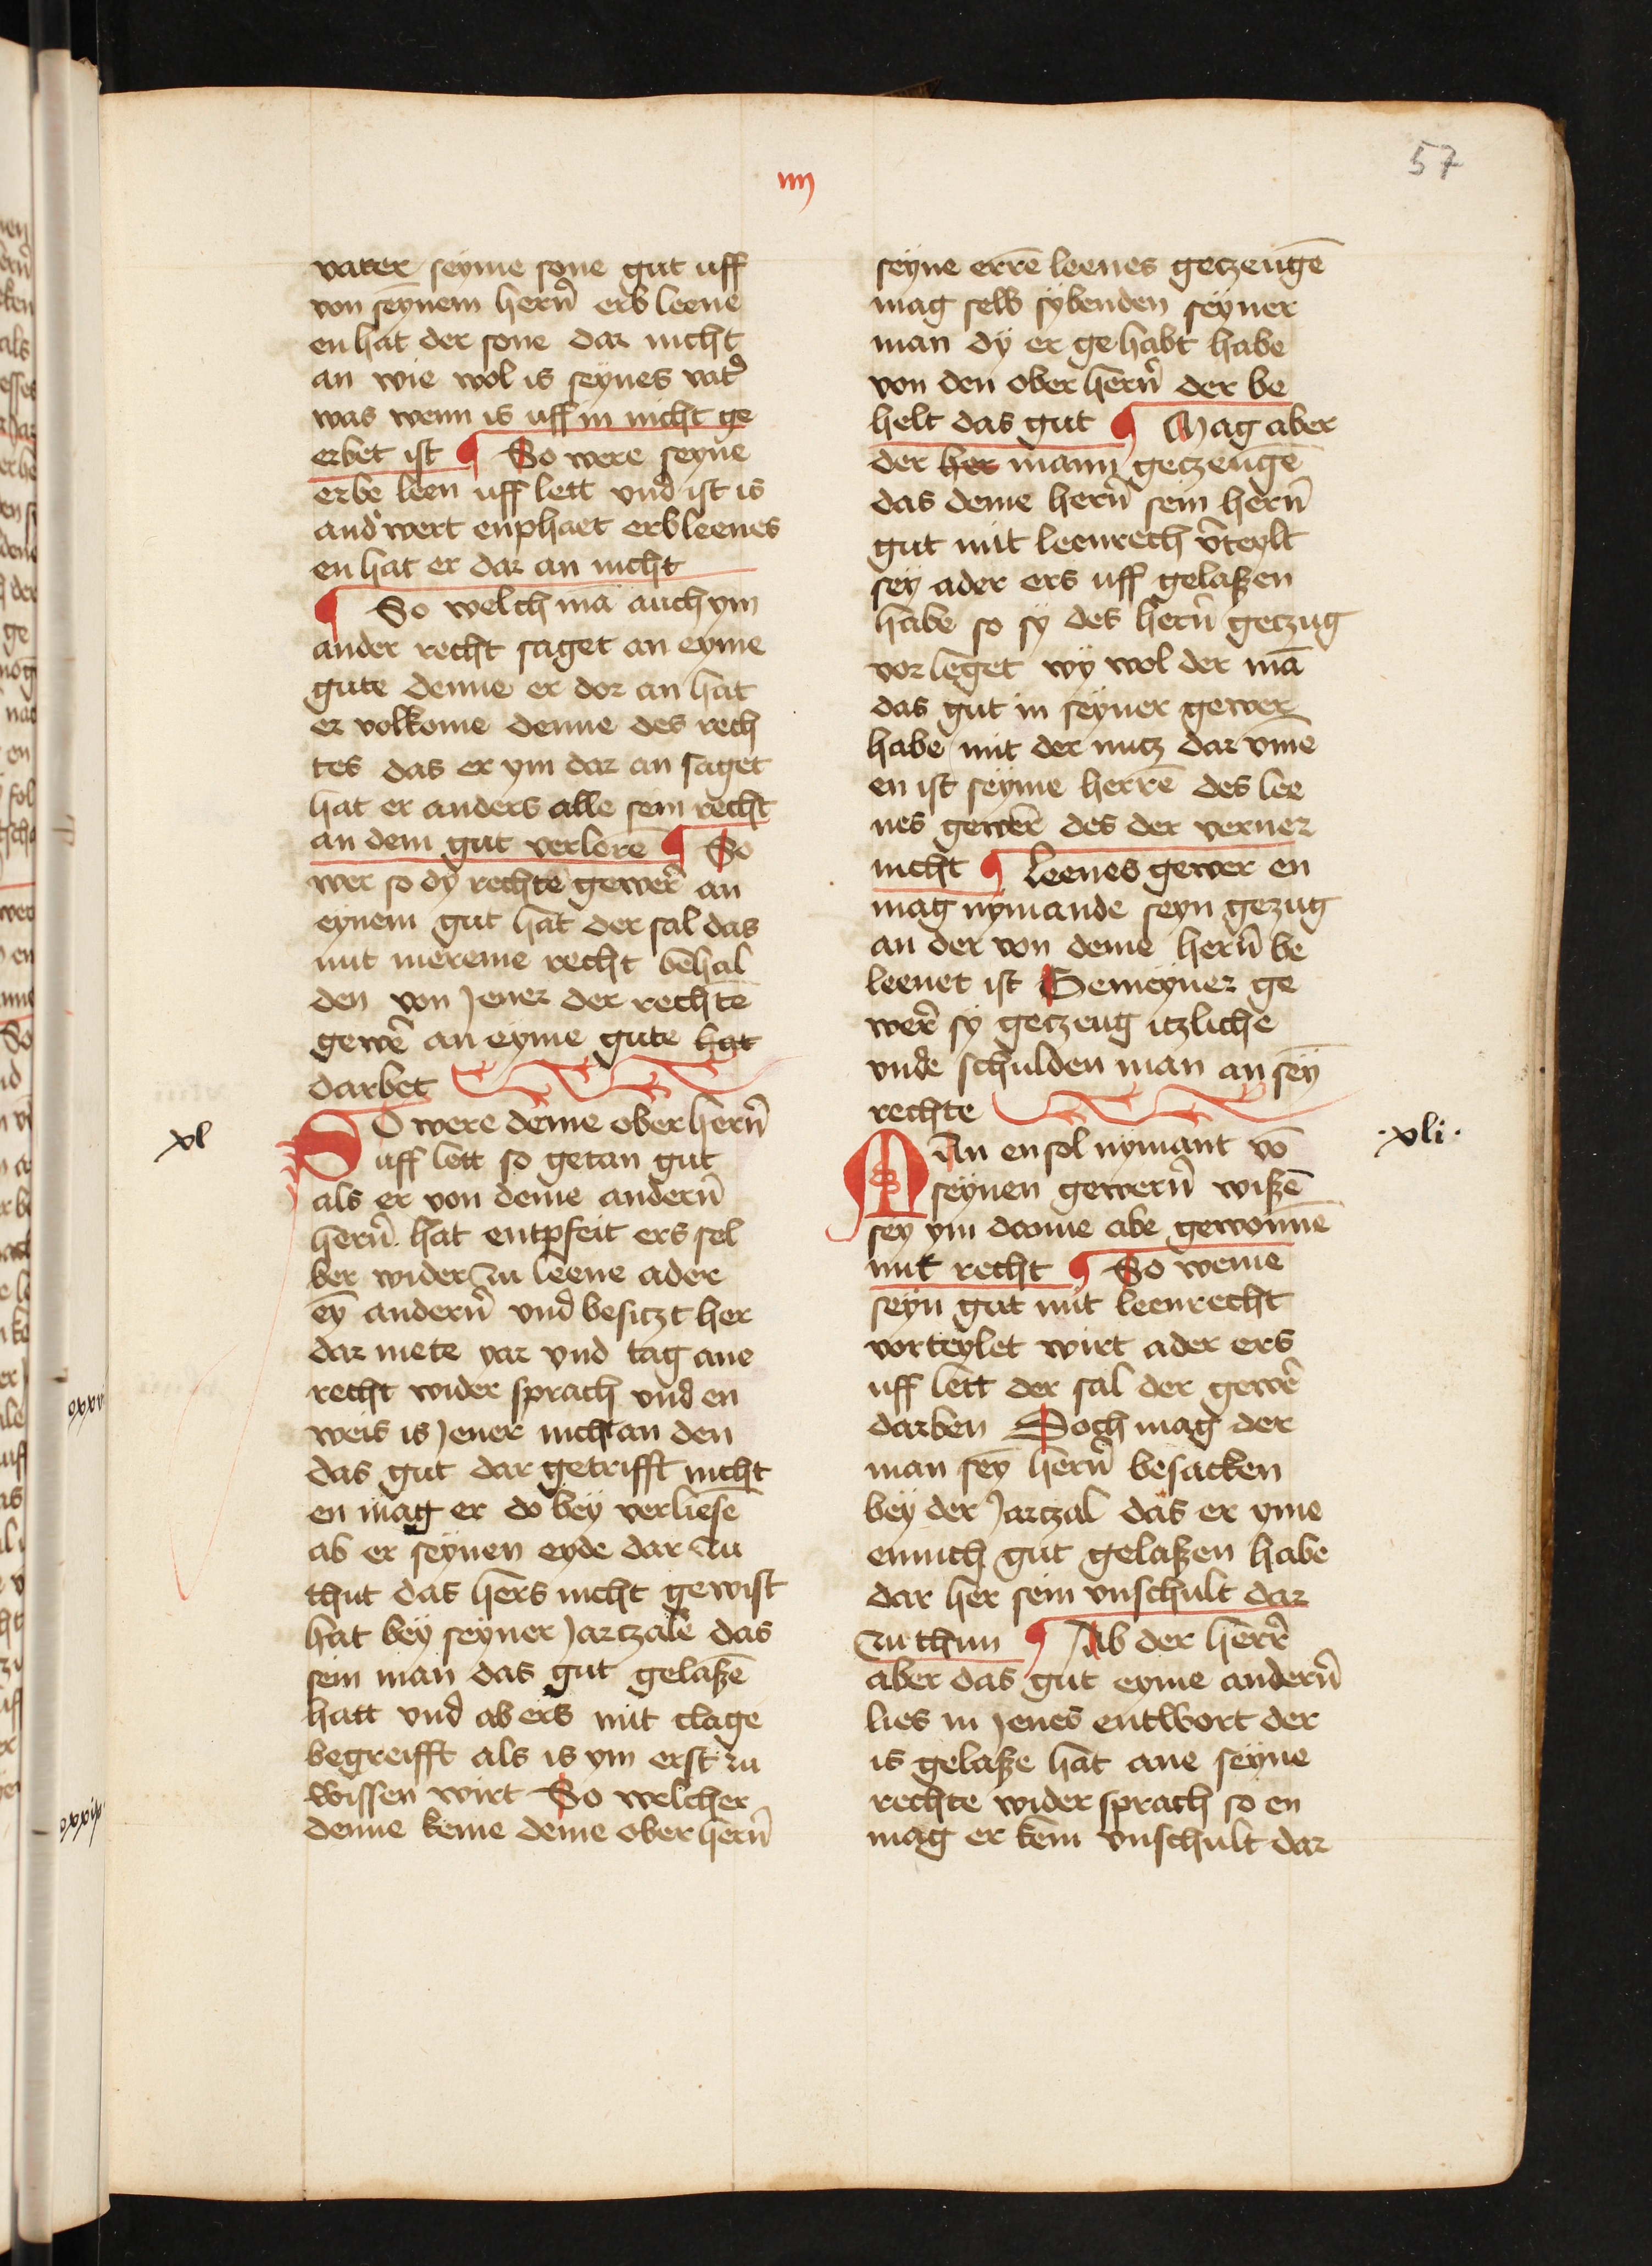 57
iiij
vater seyme sone gut uff
von seynem hern̄ erb leene
en hat der sone dar nicht
an wie wol is seynes vat̉
was wenn is uff in nicht ge
erbet ist ¶ So were seyne
erbe leen uff lett vnd ist is
and̉wert enphaet erbleenes
en hat er dar an nicht
¶ So welch mā auch ym
ander recht saget an eyme
gute denne er dor an hat
er volkome denne des rech
tes das er ym dar an saget
hat er anders alle sein recht
an dem gut verlorē ¶ So
wer so dy rechtē gewer̄ an
eynem gut hat der sal das
mit mereme recht behal
den von Jener der rechtē
gewer̄ an eyme gute hat
darbet
xl
SO were deme ober hern̄
uff lett so getan gut
als er von deme andern̄
hern̄ hat entpfeit ers sel
ber wider zu leene ader
eȳ andern̄ vnd besitzt her
dar mete yar vnd tag ane
recht wider sprach vnd en
weis is Jener nicht an den
das gut dar getrifft nicht
en mag er do bey verliesē
ab er seynen eyde dar zu
thut das hers nicht gewist
hat bey seyner Jarczale das
sein man das gut gelaßē
hatt vnd ab ers mit clage
begreifft als is ym erst zu
wissen wirt So welcher
denne keme deme ober hern̄
seyne errē leenes getzeugē
mag selb sybenden seyner
man dy er gehabt habe
von den ober hern̄ der be
helt das gut ¶ Mag aber
der her mann getzeugē
das deme hern̄ sein hern̄
gut mit leenrech v̉teylt
sey ader ers uff gelaßen
habe so sy des hern̄ getzug
vor leget wy wol der mā
das gut in seyner gewer
habe mit der nutz dar vme
en ist seyme herrē des lee
nes gewer̄ des der verner
nicht ¶ Leenes gewer en
mag nymande seyn gezug
an der von deme hern̄ be
leenet ist Gemeyner ge
wer̄ sy getzeug itzliche
vnde schulden man an seȳ
rechte
·xli·
MAn en sol nymant vō
seynen gewern̄ wißē
sey ym doome abe gewonnē
mit recht ¶ So weme
seyn gut mit leenrecht
vorteylet wirt ader ers
uff lett der sal der gewer̄
darben Doch mag der
man seȳ hern̄ besacken
bey der Jarczal das er yme
ennich gut gelaßen habe
dar her sein vnschult dar
zu thun ¶ Ab der herr̄
aber das gut eyme andern̄
lies in Jenes entwort der
is gelaße hat ane seyne
rechte wider sprach so en
mag er kein vnschult dar